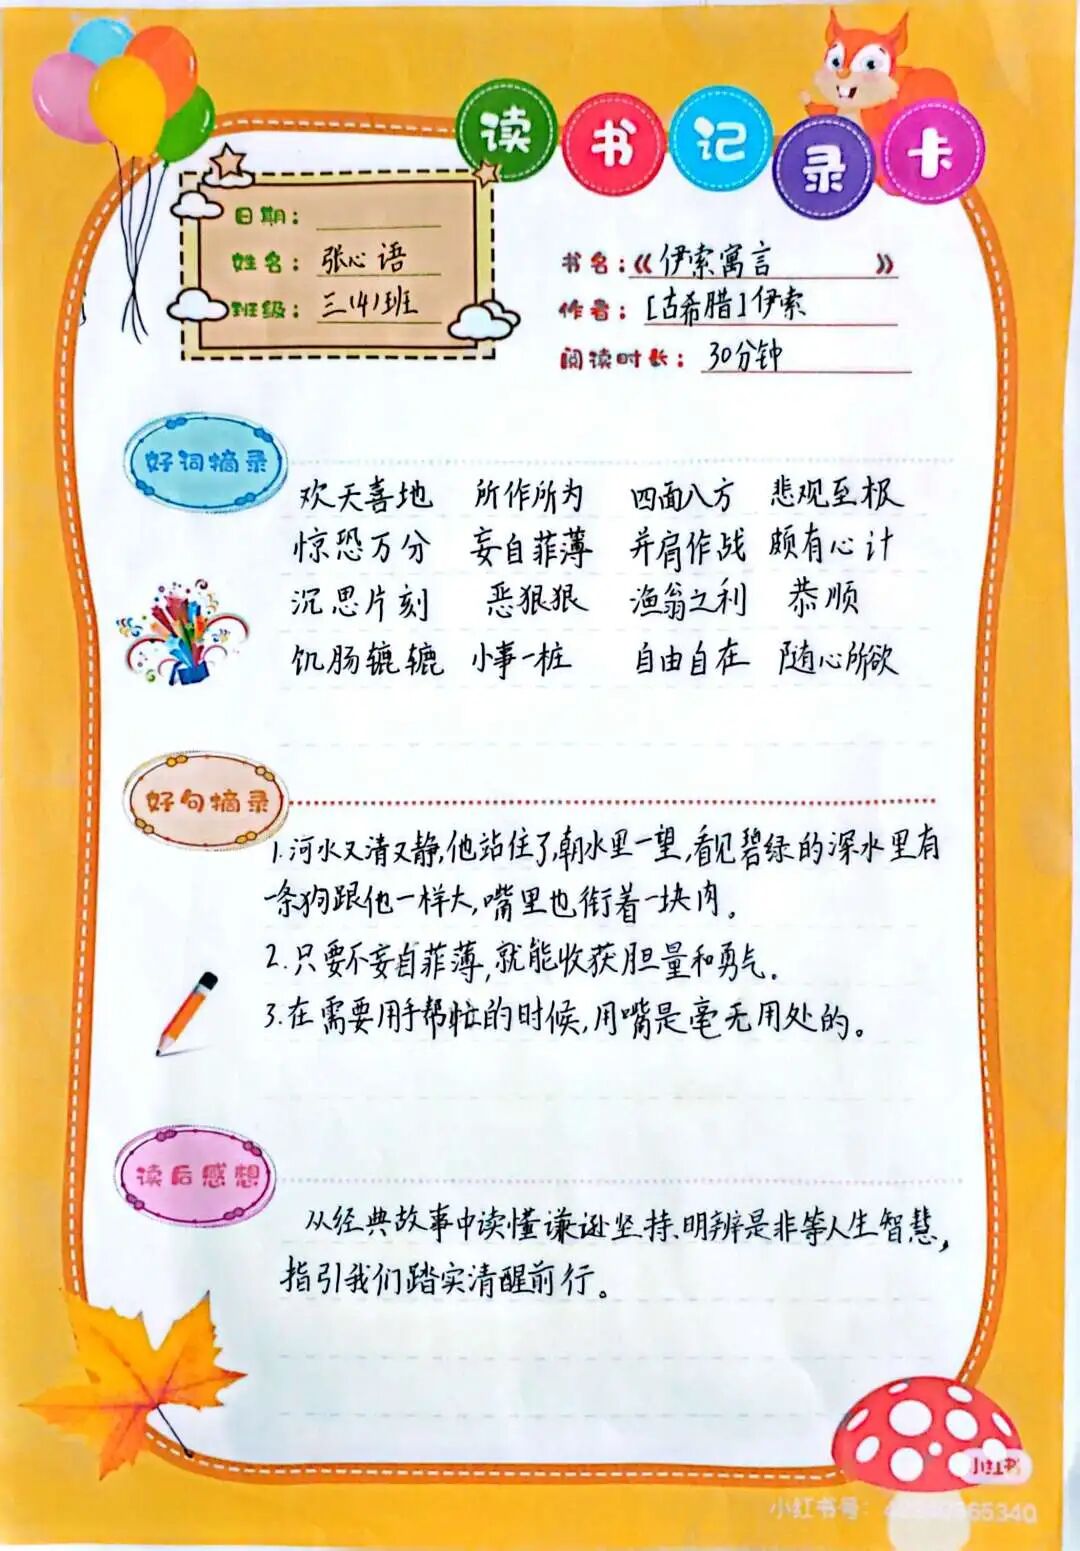 读书记录卡
日期：
姓名：张心语
班级：三(4)班
书名：《伊索寓言》
作者：[古希腊]伊索
阅读时长：30分钟
好词摘录
欢天喜地 所作所为 四面八方 悲观至极
惊恐万分 妄自菲薄 并肩作战 颇有心计
沉思片刻 恶狠狠 渔翁之利 恭顺
饥肠辘辘 小事一桩 自由自在 随心所欲
好句摘录
1.河水又清又静,他站住了,朝水里一望,看见碧绿的深水里有
一条狗跟他一样大,嘴里也衔着一块肉。
2.只要不妄自菲薄,就能收获胆量和勇气。
3.在需要用手帮忙的时候,用嘴是毫无用处的。
读后感想
从经典故事中读懂谦逊坚持、明辨是非等人生智慧,
指引我们踏实清醒前行。
小红书
小红书号：